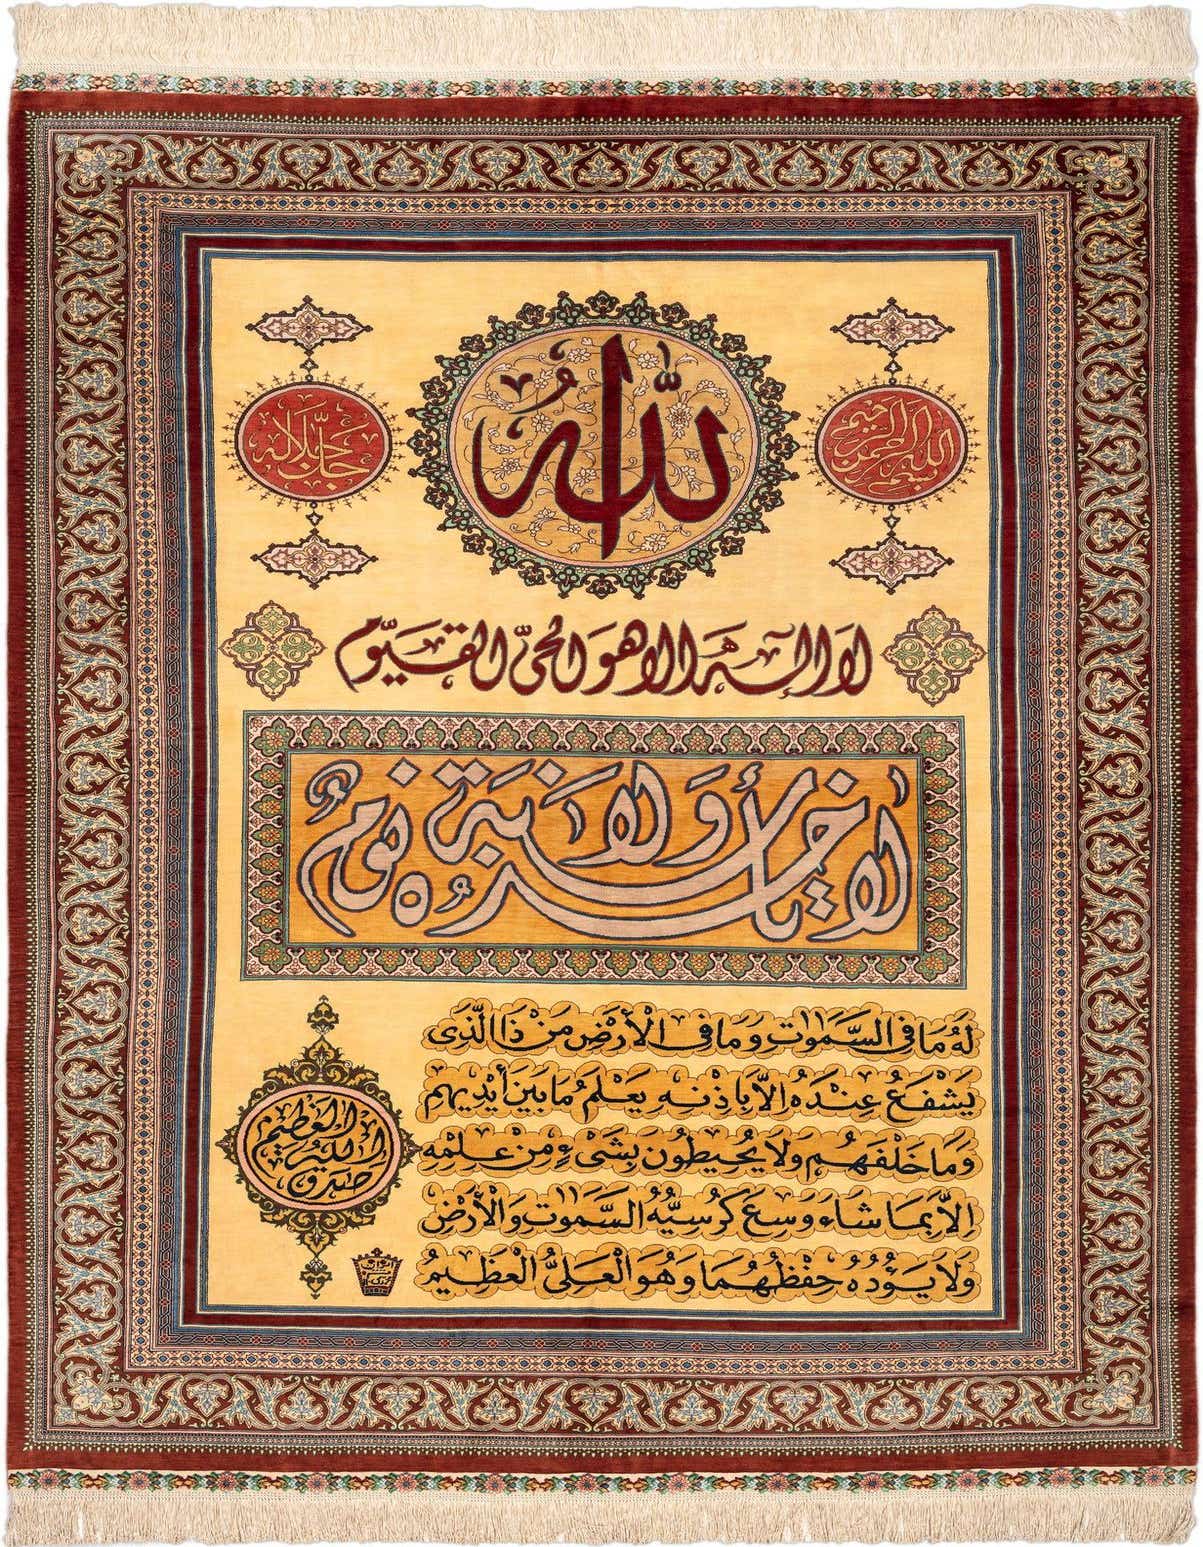 بسم الله الرحمن الرحيم
الله
جل جلاله
لا اله الا هو الحیّ القیّوم
لا تأخذه سنة ولا نومٌ
لَهُ مَا فِی السَّمٰوٰتِ وَمَا فِی الْأَرْضِ مَنْ ذَا الَّذی
یَشْفَعُ عِنْدَهُ اِلاَّ بِاِذْنِهِ یَعْلَمُ مَا بَیْنَ أَیْدِیهِم
وَمَا خَلْفَهُم وَلَا یُحیطُونَ بِشَیْءٍ مِنْ عِلْمِهِ
اِلاَّ بِمَا شَاءَ وَسِعَ كُرْسِیُّهُ السَّمٰوٰتِ وَالْأَرْضَ
وَلَا یَؤُدُهُ حِفْظُهُمَا وَهُوَ الْعَلیُّ الْعَظِیمُ
صدق الله العلي العظيم